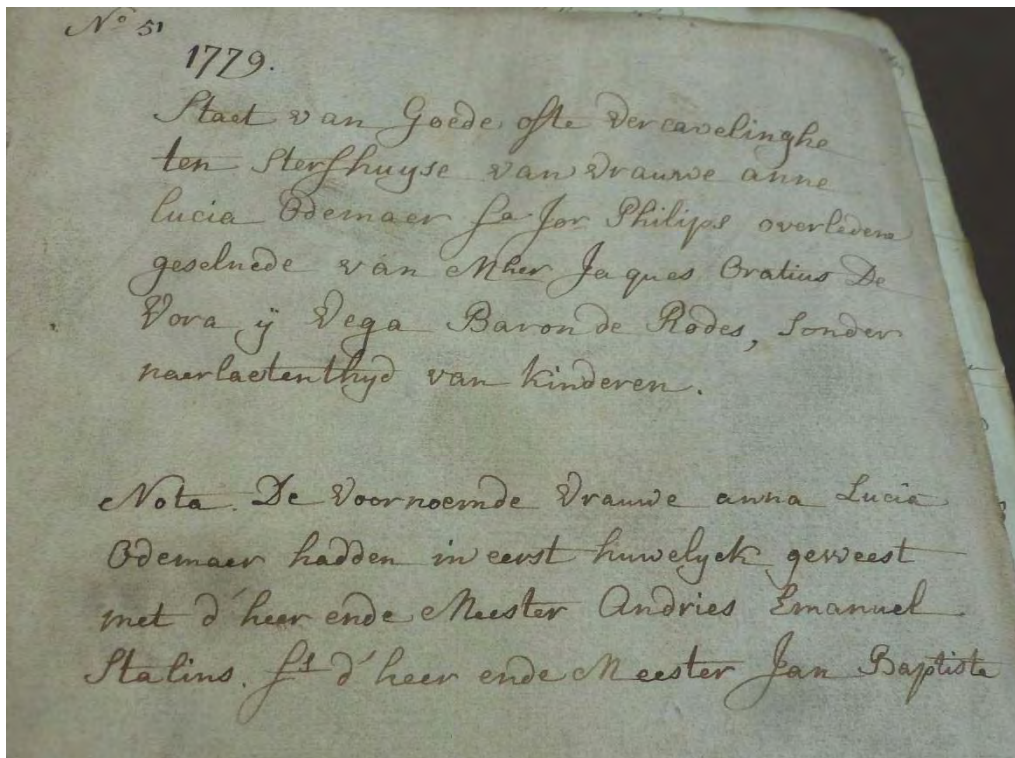 N° 51
1779.
Staet van Goede ofte Vercavelinghe
ten Sterfhuyse van vrauwe anne
lucia Odemaer fa Jor Philips overledene
geselnede van Mher Jaques Oratius De
Vora ÿ Vega Baron de Rodes, sonder
naerlaetenthyd van kinderen.
Nota. De voornoemde Vrauwe anna Lucia
Odemaer hadden in eerst huwelyck geweest
met d'heer ende Meester Andries Emanuel
Stalins. fs d'heer ende Meester Jan Baptiste